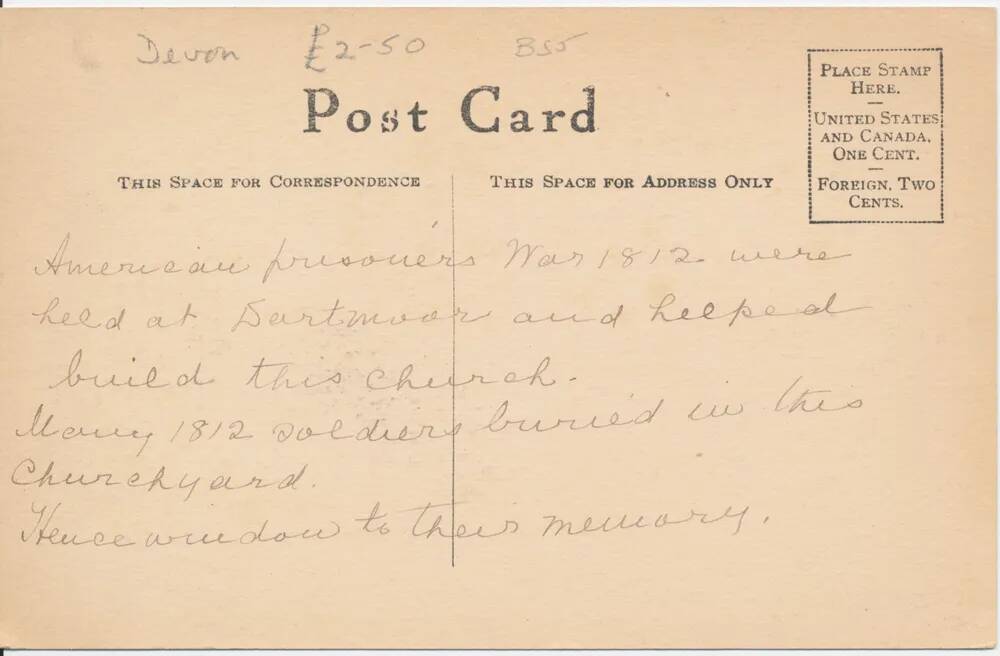 Devon £2-50 BS5
Post Card
THIS SPACE FOR CORRESPONDENCE
THIS SPACE FOR ADDRESS ONLY
PLACE STAMP
HERE.
UNITED STATES
AND CANADA,
ONE CENT.
FOREIGN, TWO
CENTS.
American prisoners War 1812 were
held at Dartmoor and helped
build this church.
Many 1812 soldiers buried in this
Churchyard.
Hence window to their memory.